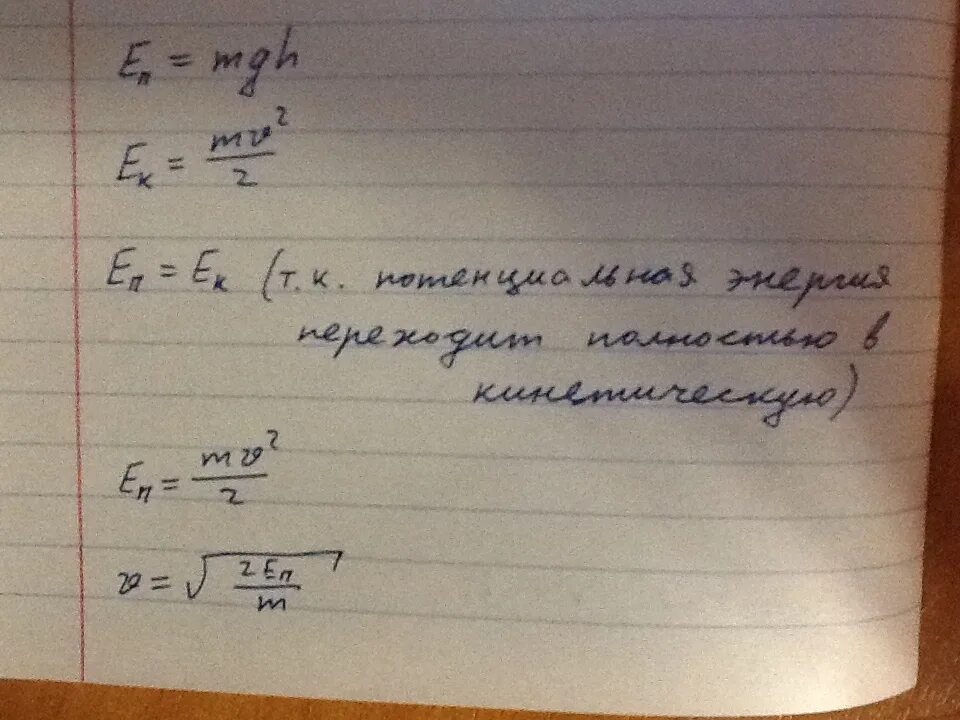 Eп = mgh
Eк = mv²/2
Eп = Eк (т.к. потенциальная энергия
переходит полностью в
кинетическую)
Eп = mv²/2
v = √(2Eп/m)